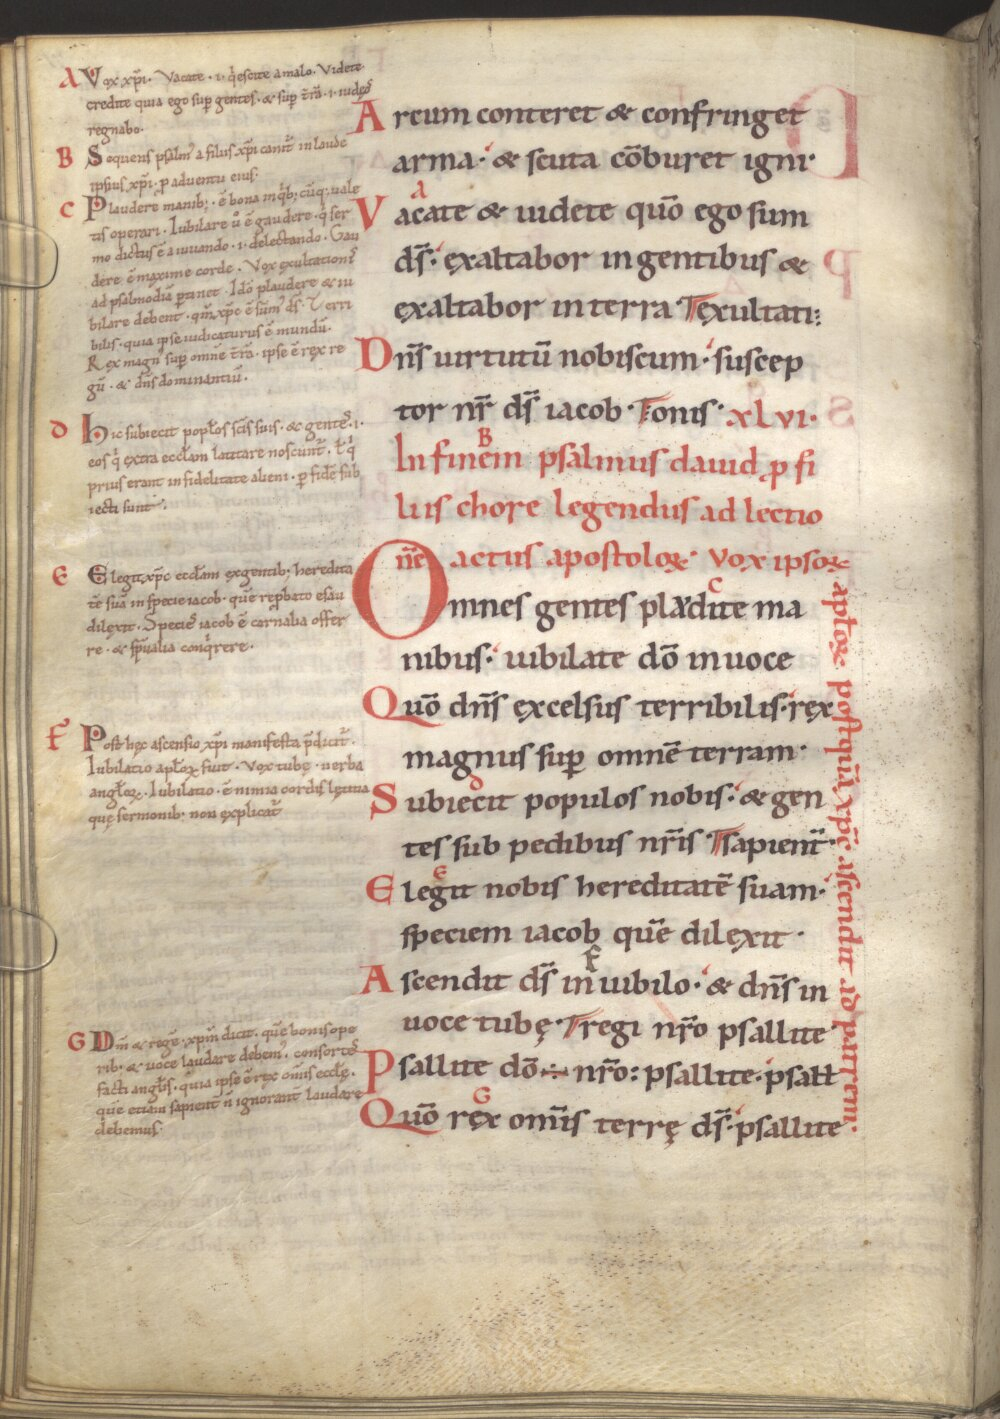 A Vox xp̄i. Vacate .i. q̇escite a malo. Videte
credite quia ego sup̱ gentes. & sup̱ t̄rā .i. iudęoſ
regnabo.
B Sequens psalm̄ a filiis xp̄i canit᷑ in laude
ipsius xp̄i. p̱ aduentu eius.
C Plaudere manib; . ē bona in q'b; cūq; uale
tis operari. Iubilare u̇ ē gaudere. q' ser
mo dictus ē a iuuando .i. delectando. Gau
dere ē maxime corde. Vox exultationiſ
ad psalmodiā p̱tinet. Ido plaudere & iu
bilare debent. qm̄ xp̄c ē sūm' dſ̄. Terri
bilis. quia ipse iudicaturus ē mundū.
Rex magn' sup̱ omnē t̄rā. ipse ē rex re
gū. & dn̄s dominantiū.
D Hic subiecit popl̄os sc̄is suis. & genteſ .i.
eos q' extra eccl̄am latitare noscunt᷑. t̄ q'
prius erant infidelitate alieni. p̱ fidē sub
iecti sunt.
E Elegit xp̄c eccl̄am ex gentib; heredita
tē suā in specie iacob. quē rep̱bato esau
dilexit. Specieſ iacob ē carnalia offer
re. & sp̄ualia conq'rere.
F Post hęc ascensio xp̄i manifesta p̄dicit᷑.
Iubilatio apl̄oꝝ fuit. Vox tubę. uerba
angl̄oꝝ. Iubilatio. ē nimia cordis lętitia
quę sermonib; non explicat᷑
G Dm̄ & regē. xpm̄ dicit. quē bonis ope
rib; & uoce laudare debem'. consorteſ
facti angl̄is. quia ipse ē rex om̄is eccl̄ę.
que etiam sapient n̄ ignorant laudare
debemus.
Arcum conteret & confringet
arma. & scuta cōburet igni.
A
Vacate & uidete quō ego sum
dſ̄. exaltabor in gentibus &
exaltabor in terra Texultati:
Dn̄s uirtutū nobiscum. suscep
tor nr̄ dſ̄ iacob. Tonis. xlvi.
B
In finem psalmus dauid p̱ fi
liis chore legendus ad lectio
nē actus apostoloꝝ. vox ipsoꝝ
apl̄oꝝ postquā xp̄c ascendit ad patrem.
C
Omnes gentes plaudite ma
nibus. iubilate dō in uoce
Quō dn̄s excelsus terribilis. rex
magnus sup̱ omnē terram.
D
Subiecit populos nobis. & gen
tes sub pedibus nr̄is Tsapient᷑.
E
Elegit nobis hereditatē suam.
speciem iacob quē dilexit.
F
Ascendit dſ̄ in iubilo. & dn̄s in
uoce tubę. Tregi nr̄o psallite
Psallite dō ÷ nr̄o: psallite. psall̄
G
Quō rex om̄is terrę dſ̄. psallite